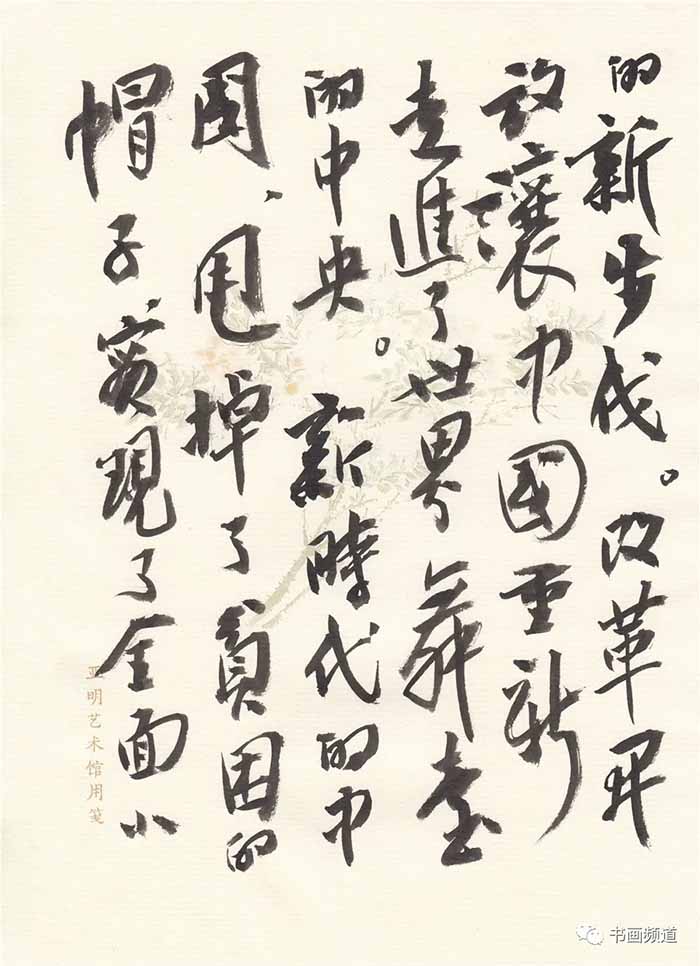 的新步伐。改革開
放讓中國重新
走進了世界舞臺
的中央。新時代的中
国、甩掉了貧困的
帽子、实現了全面小
亚明艺术馆用笺
书画频道